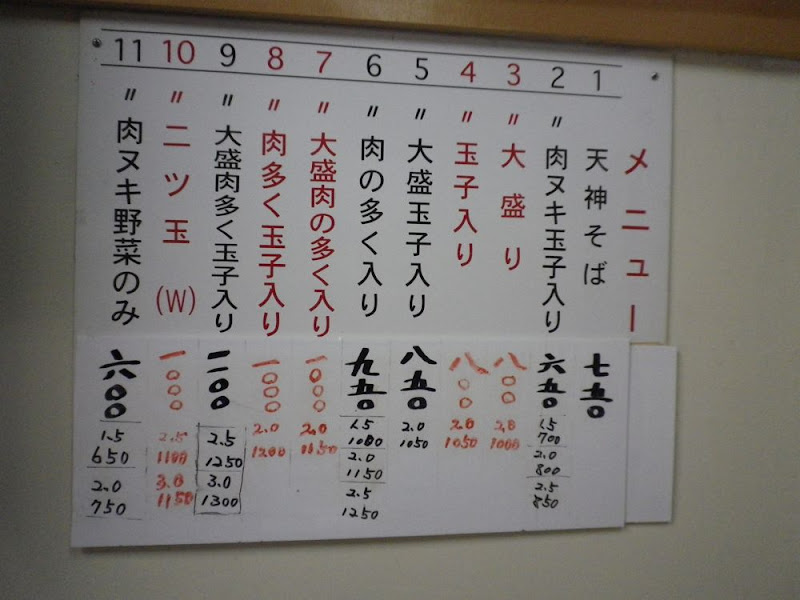 メニュー
1
天神そば
七五〇
2
〃肉ヌキ玉子入り
六五〇
1.5
700
2.0
800
2.5
850
3
〃大盛り
八〇〇
2.0
1000
4
〃玉子入り
八〇〇
2.0
1050
5
〃大盛玉子入り
八五〇
2.0
1050
6
〃肉の多く入り
九五〇
1.5
1080
2.0
1150
2.5
1250
7
〃大盛肉の多く入り
一〇〇〇
2.0
1150
8
〃肉多く玉子入り
一〇〇〇
2.0
1200
9
〃大盛肉多く玉子入り
一一〇〇
2.5
1250
3.0
1300
10
〃二ツ玉(W)
一〇〇〇
2.5
1100
3.0
1150
11
〃肉ヌキ野菜のみ
六〇〇
1.5
650
2.0
750